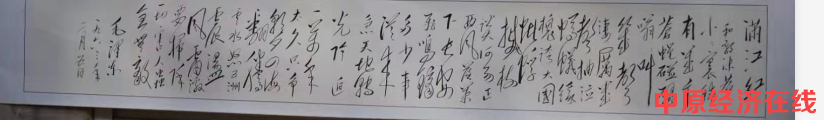 满江红
和郭沫若
小小寰球
有几个
苍蝇碰壁
嗡嗡叫
几声
凄厉几
声抽泣
蚂蚁缘
槐夸大国
蚍蜉
撼树
谈何易正
西风落叶
下长安
飞鸣镝
多少事
从来
急天地转
光阴迫
一万年
太久只争
朝夕四海
翻腾
云水怒五洲
震荡
风雷激
要扫除
一切害人虫
全无敌
毛泽东
一九六三年
中原经济在线